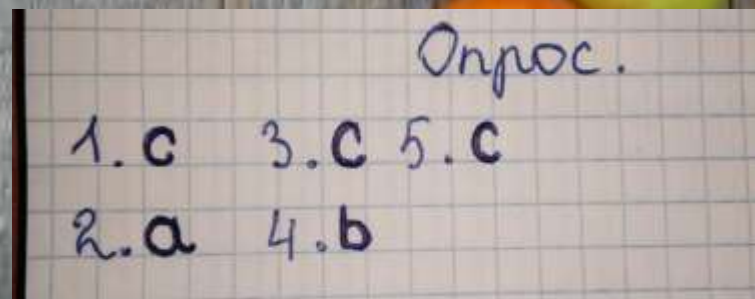 Опрос.
1. c 3. c 5. c
2. a 4. b